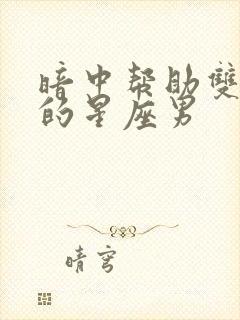 暗中帮助雙
的星座男
晴穹